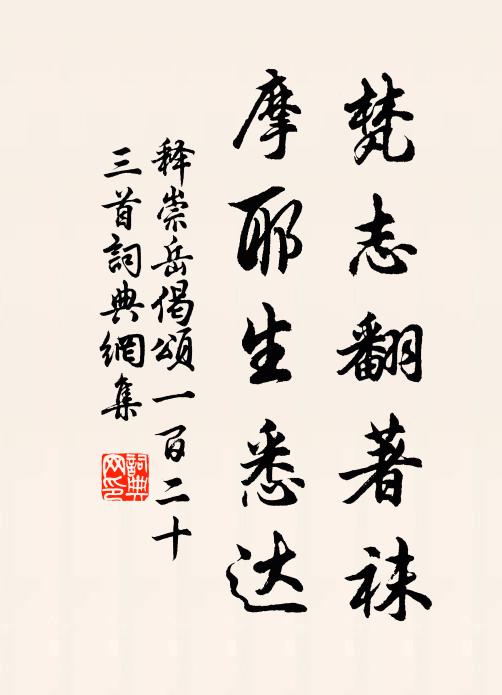 梵志翻著袜
摩耶生悉达
释崇岳偈頌一百二十
三首詞典網集
詞典网印